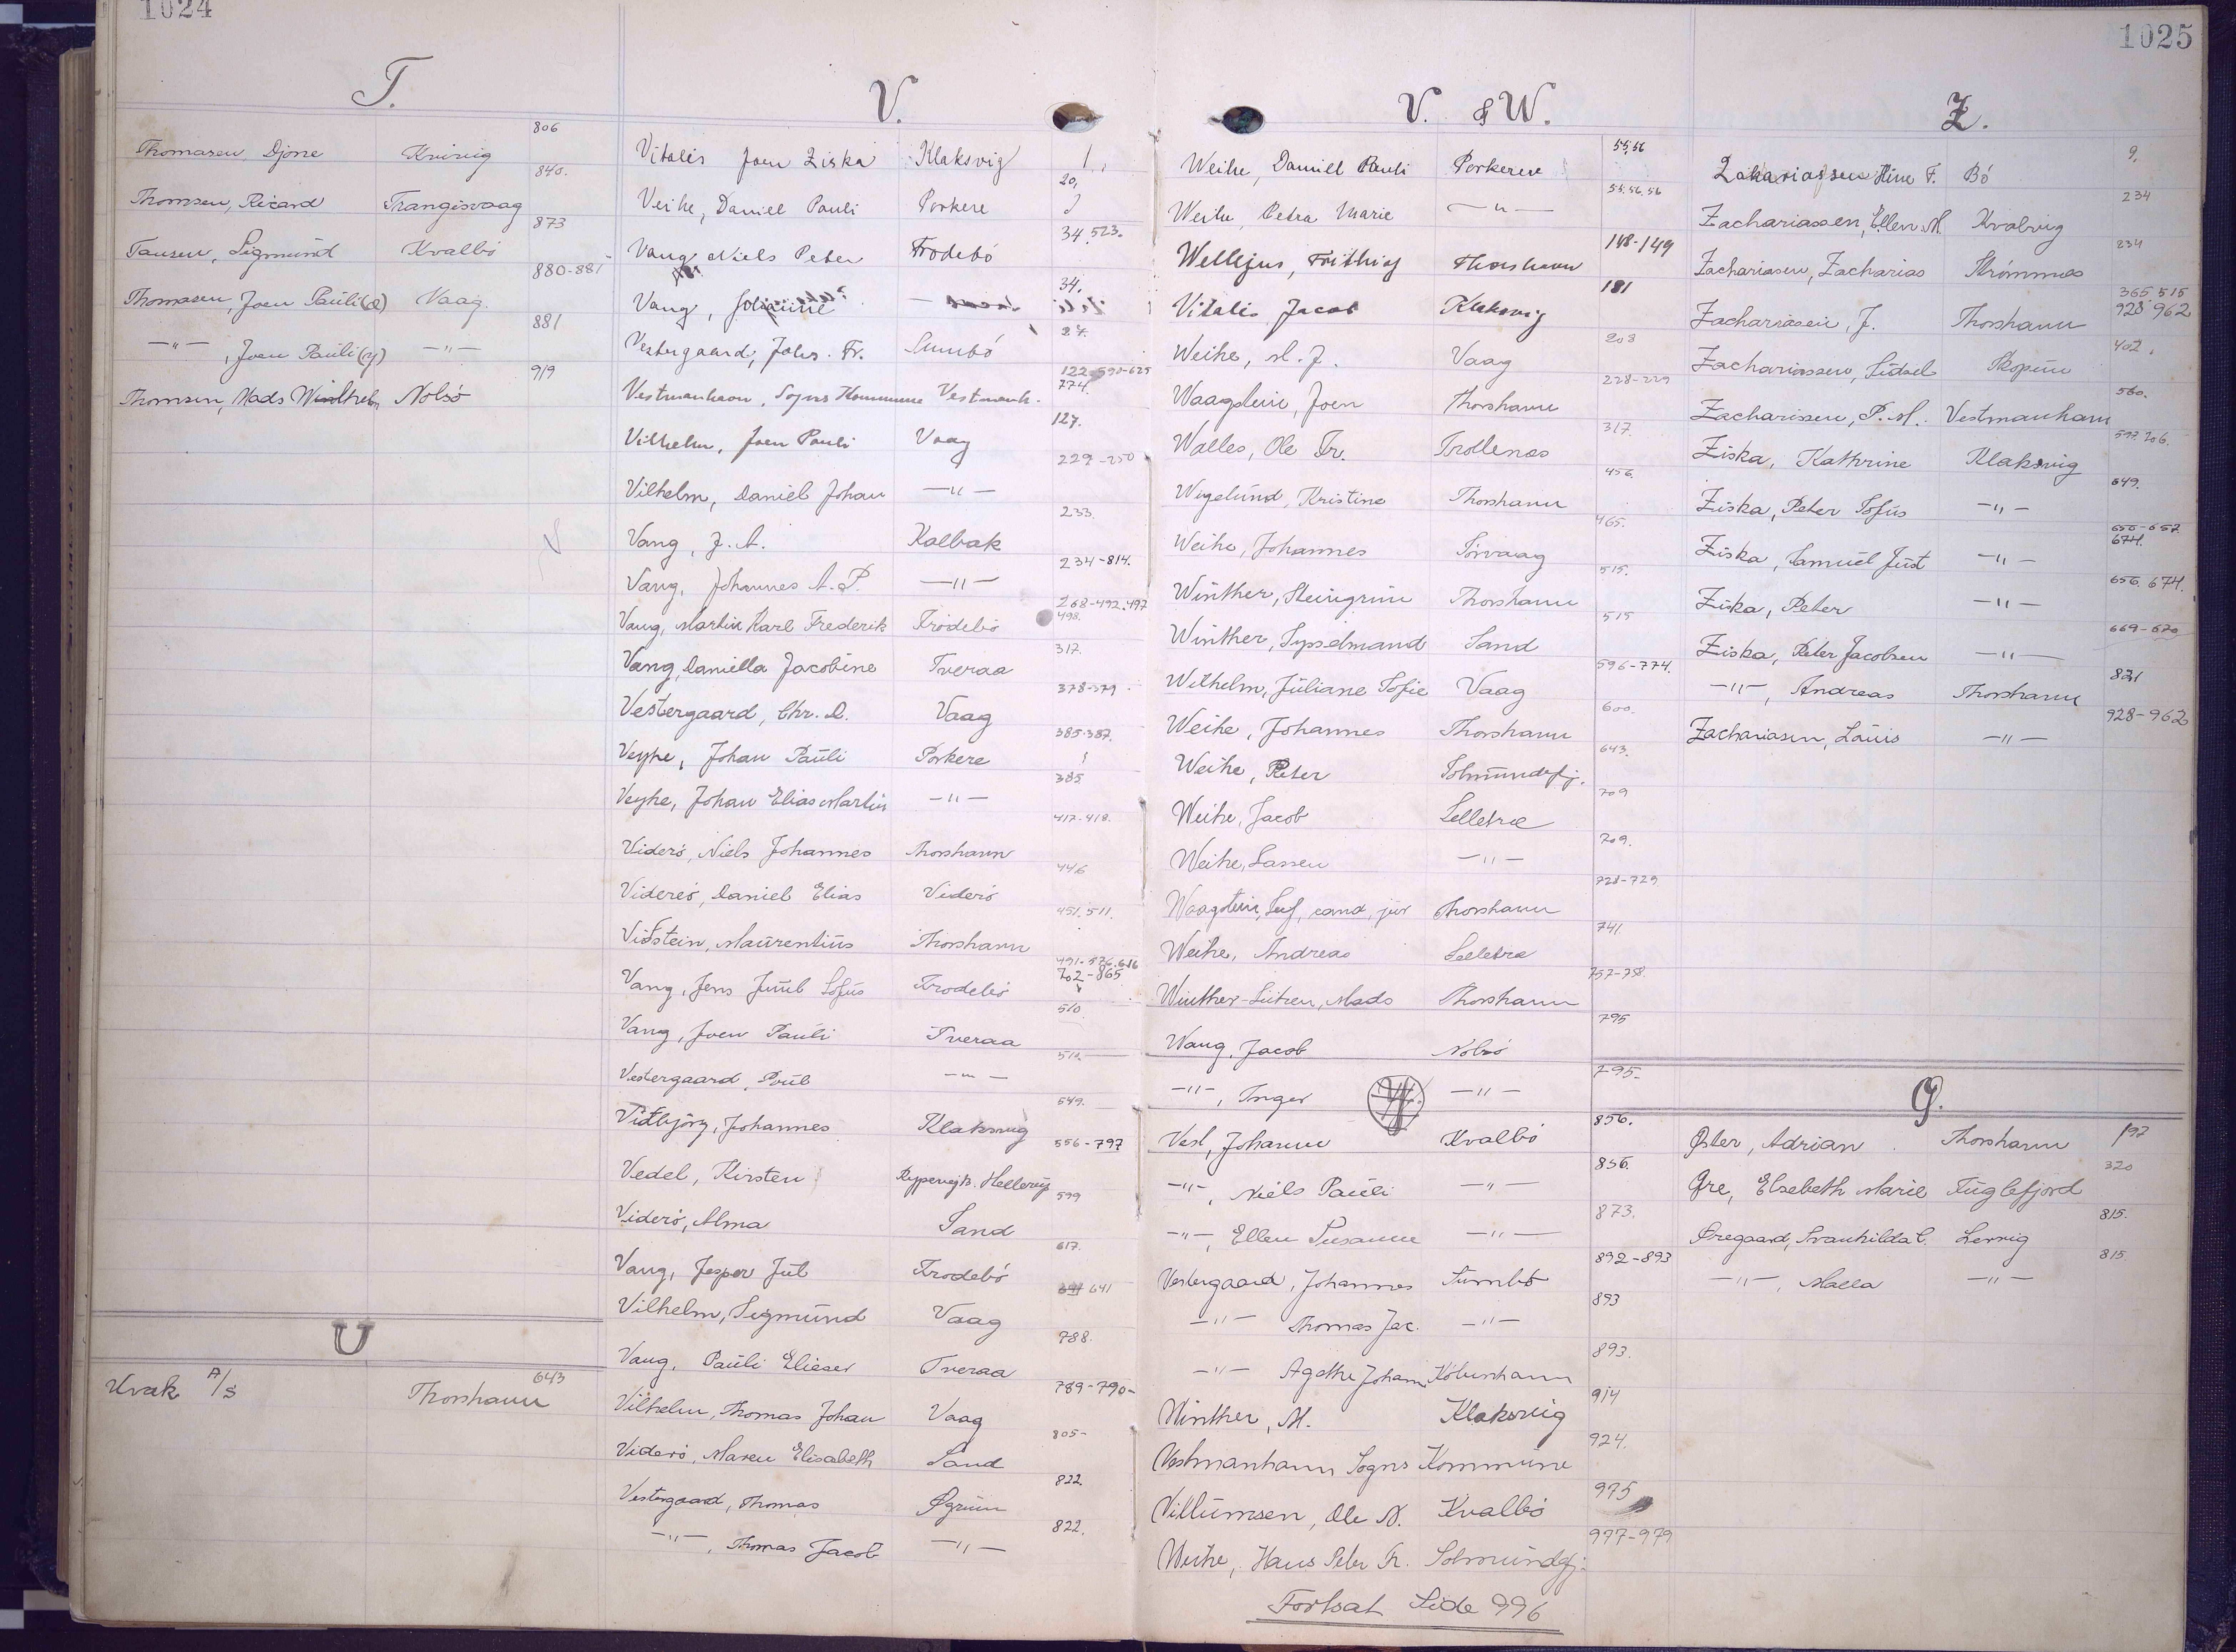 1024
T.
806
Thomasen, Djone Kvivig
840.
Thomsen, Ricard Trangisvaag
873
Tausen, Sigmund Kvalbö
880-881
Thomasen, Joen Pauli (æ) Vaag.
881
—"—, Joen Pauli (y) —"—
919
Thomsen, Mads Winthreb Nolsö
U
643
Kvak A/S Thorshavn
V.
Vitalis Joen Ziska Klaksvig 1.
20,
Veihe, Daniel Pauli Porkere
34. 523.
Vang Niels Peter Frodebö
34.
Vang,
84.
Vestergaard, Johs. Fr. Sumbö
122-590-625
774.
Vestmanhavn, Sogns Kommune Vestmanh.
127.
Vilhelm, Joen Pauli Vaag
229-250
Vilhelm, Daniel Johan —"—
233.
Vang, J. A. Kalbak
234-814.
Vang, Johannes A. P. —"—
268-492.497
498.
Vang, Martin Karl Frederik Frodebö
317.
Vang, Daniella Jacobine Tveraa
378-379
Vestergaard, Chr. D. Vaag
385-387.
Veyhe, Johan Pauli Porkere
385
Veyhe, Johan Elias Martin —"—
417-418.
Viderö, Niels Johannes Thorshavn
446
Videreö, Daniel Elias Viderö
451. 511.
Vidstein, Maurentius Thorshavn
491-576.616
702-865
Vang, Jens Juul Sofus Frodebö
510.
Vang, Joen Pauli Tveraa
512.
Vestergaard, Poul —"—
549.
Vidbjörg, Johannes Klaksvig
556-797
Vedel, Kirsten Rypevejts. Hellerup
599
Viderö, Alma Sand
617.
Vang, Jesper Jul Frodebö
641 641
Vilhelm, Sigmund Vaag
788.
Vang, Pauli Elieser Tveraa
789-790-
Vilhelm, Thomas Johan Vaag
805-
Viderö, Maren Elisabeth Sand
822.
Vestergaard, Thomas Øgrum
822.
—"—, Thomas Jacob —"—
V. & W.
55.56
Weihe, Daniel Pauli Porkere
55.56.56
Weihe, Petra Marie —"—
148-149
Wellejus, Frithiof Thorshavn
181
Vitalis, Jacob Klaksvig
203
Weihe, M. J. Vaag
228-229
Waagstein, Joen Thorshavn
317.
Walles, Ole Fr. Trollenæs
456.
Wigelund, Kristine Thorshavn
465.
Weihe, Johannes Sörvaag
515.
Winther, Steingrim Thorshavn
515
Winther, Sysselmand Sand
596-774.
Wilhelm, Juliane Sofie Vaag
600.
Weihe, Johannes Thorshavn
643.
Weihe, Peter Solmundefj.
709
Weihe, Jacob Selletræ
709.
Weihe, Lassen —"—
728-729
Waagstein, Leif, cand, jur Thorshavn
741
Weihe, Andreas Selletræ
757-758.
Winther-Lützen, Mads Thorshavn
795
Wang, Jacob Nolsö
795.
—"—, Inger —"—
856.
Vesl, Johanne Kvalbö
856.
—"—, Niels Pauli —"—
873.
—"—, Ellen Susanne —"—
892-893
Vestergaard, Johannes Sumbö
893
—"— Thomas Jac. —"—
893.
—"— Agathe Johan Köbenhavn
914
Winther, M. Klaksvig
924.
Vestmanhavns Sogns Kommune
975
Villumsen, Ole N. Kvalbö
977-979
Weihe, Hans Peter Fr. Solmundefj.
Fortsat Side 996
1025
Z.
9,
Zakariassen Stine F. Bö
234
Zachariassen, Ellen M. Kvalvig
234
Zachariasen, Zacharias Strömnæs
365 515
928 962
Zachariasen, J. Thorshavn
402.
Zachariassen, Sidsel Skopun
560.
Zacharissen, P. M. Vestmanhavn
597. 706.
Ziska, Kathrine Klaksvig
649.
Ziska, Peter Sofus —"—
656-657
674.
Ziska, Samuel Just —"—
656. 674.
Ziska, Peter —"—
669-670
Ziska, Peter Jacobsen —"—
821
—"—, Andreas Thorshavn
928-962
Zachariasen, Louis —"—
Ø.
197
Øster, Adrian Thorshavn
320
Øre, Elsebeth Marie Fuglefjord
815.
Øregaard, Svanhilda C. Lervig
815.
—"—, Malla —"—